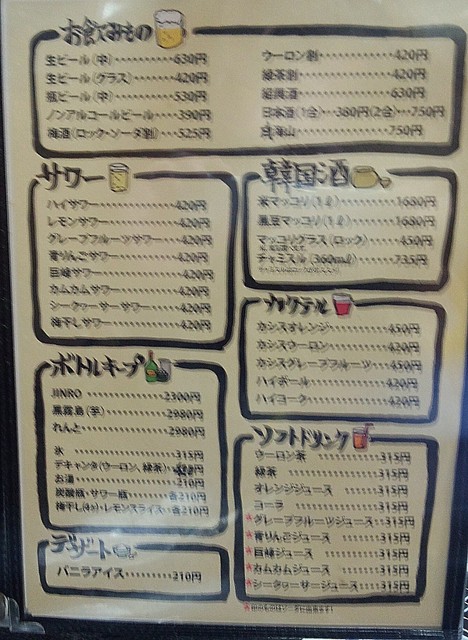 お飲みもの
生ビール(中)············630円
生ビール(グラス)·······420円
瓶ビール(中)············530円
ノンアルコールビール······390円
梅酒(ロック・ソーダ割)···525円
ウーロン割··············420円
緑茶割··················420円
紹興酒··················630円
日本酒(1合)···380円(2合)···750円
海山················750円
サワー
ハイサワー··············420円
レモンサワー············420円
グレープフルーツサワー···420円
青りんごサワー··········420円
巨峰サワー··············420円
カムカムサワー··········420円
シークヮーサーサワー····420円
梅干しサワー············420円
韓国酒
米マッコリ(1ℓ)·········1680円
黒豆マッコリ(1ℓ)·······1680円
マッコリグラス(ロック)····450円
チャミスル(360mℓ)·······735円
カクテル
カシスオレンジ··········450円
カシスウーロン··········420円
カシスグレープフルーツ····450円
ハイボール··············420円
ハイコーク··············420円
ボトルキープ
JINRO··················2300円
黒霧島(芋)·············2980円
れんと·················2980円
氷·····················315円
デキャンタ(ウーロン、緑茶)
お湯···················210円
炭酸瓶・サワー瓶·····各210円
梅干し・レモンスライス・各210円
デザート
バニラアイス············210円
ソフトドリンク
ウーロン茶··············315円
緑茶····················315円
オレンジジュース········315円
コーラ··················315円
★グレープフルーツジュース···315円
★青りんごジュース·······315円
★巨峰ジュース···········315円
★カムカムジュース·······315円
★シークヮーサージュース···315円